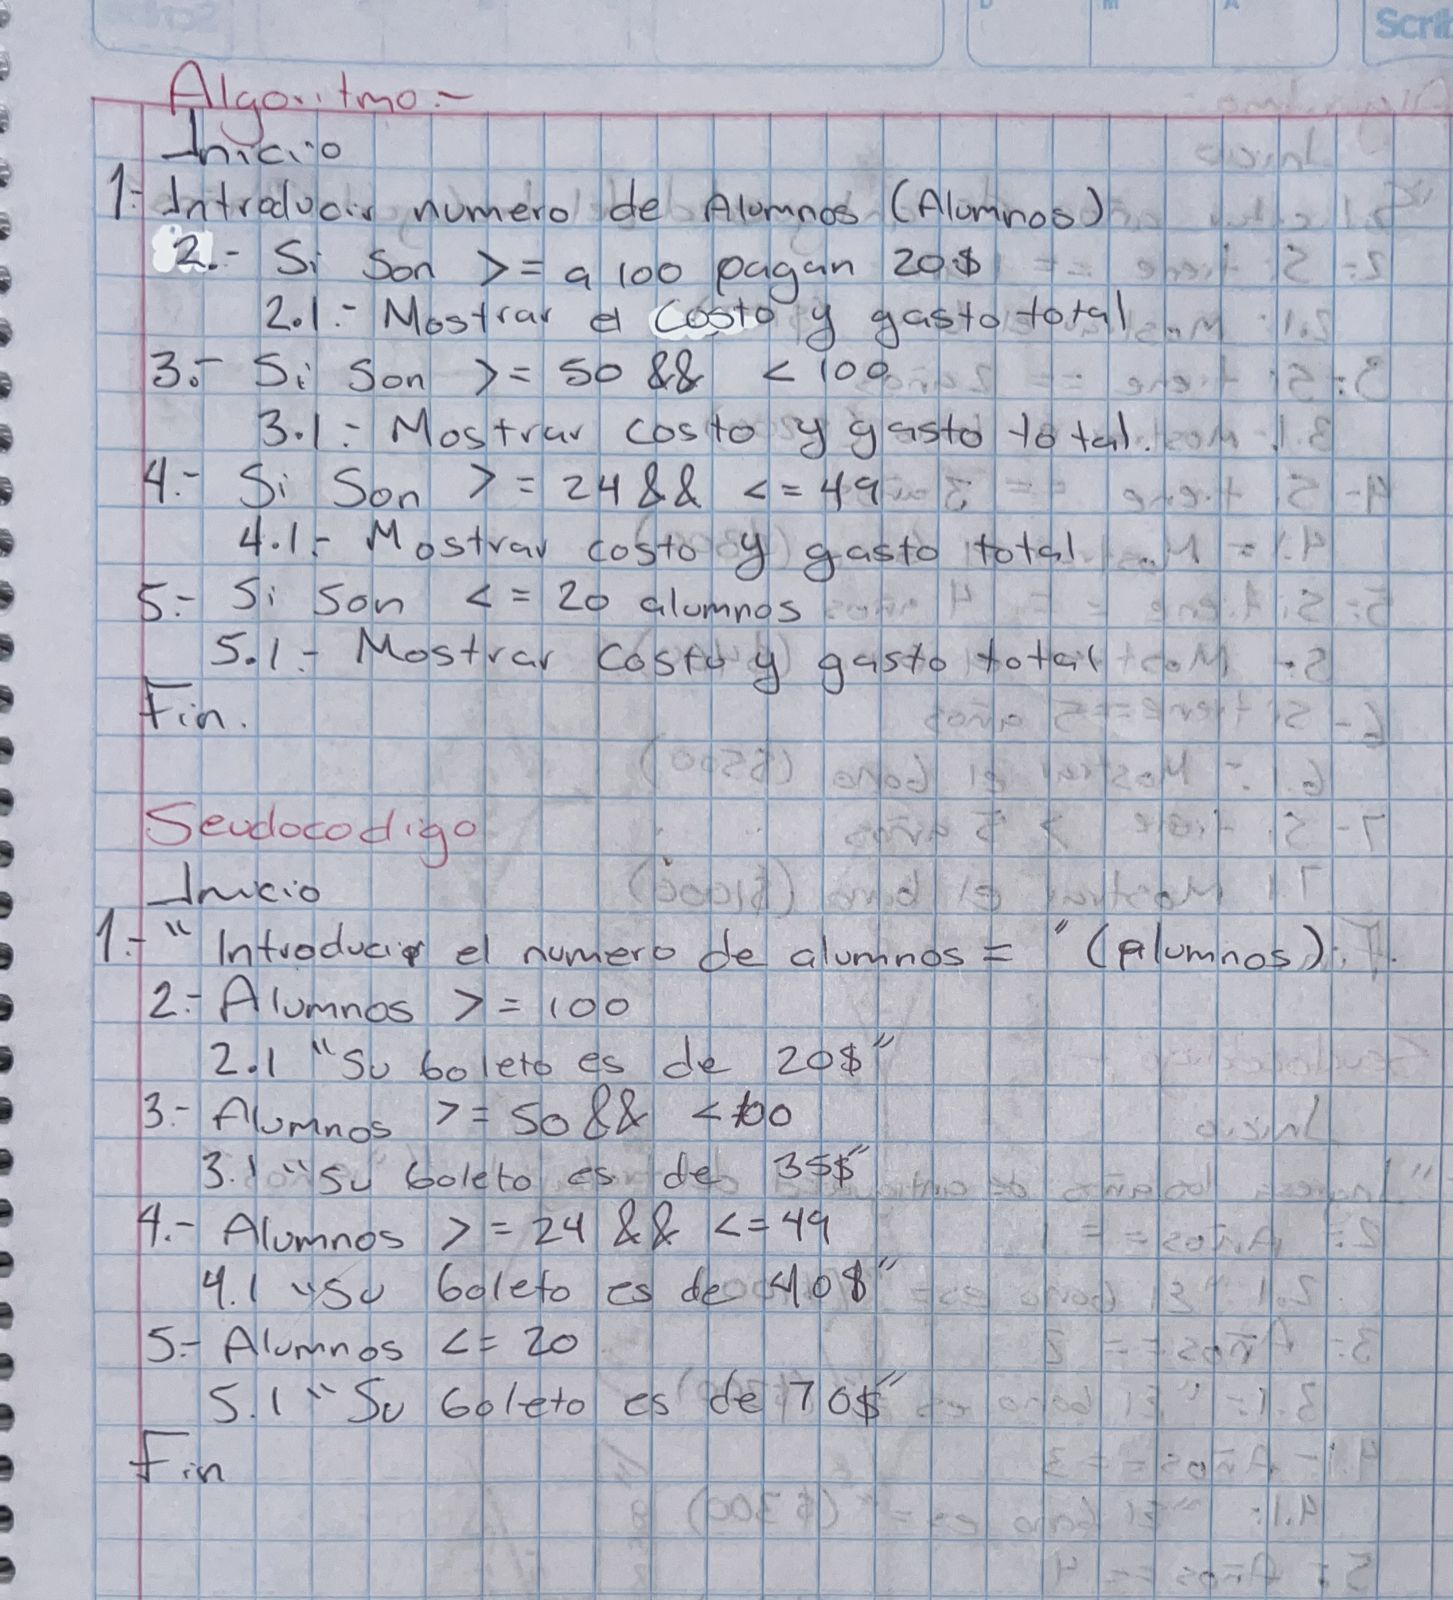 Scrib
D
M
A
Algoritmo.-
Inicio
1.- Introducir numero de Alumnos (Alumnos)
2.- Si Son >= a 100 pagan 20$
2.1.- Mostrar el Costo y gasto total
3.- Si Son >= 50 && < 100
3.1.- Mostrar costo y gasto total.
4.- Si Son >= 24 && <= 49
4.1.- Mostrar costo y gasto total
5.- Si Son <= 20 alumnos
5.1.- Mostrar Costo y gasto total
Fin.
Seudocodigo
Inicio
1.- "Introducir el numero de alumnos = " (Alumnos)
2.- Alumnos >= 100
2.1 "Su boleto es de 20$"
3.- Alumnos >= 50 && < 100
3.1 "Su boleto es de 35$"
4.- Alumnos >= 24 && <= 49
4.1 "Su boleto es de 40$"
5.- Alumnos <= 20
5.1 "Su boleto es de 70$"
Fin